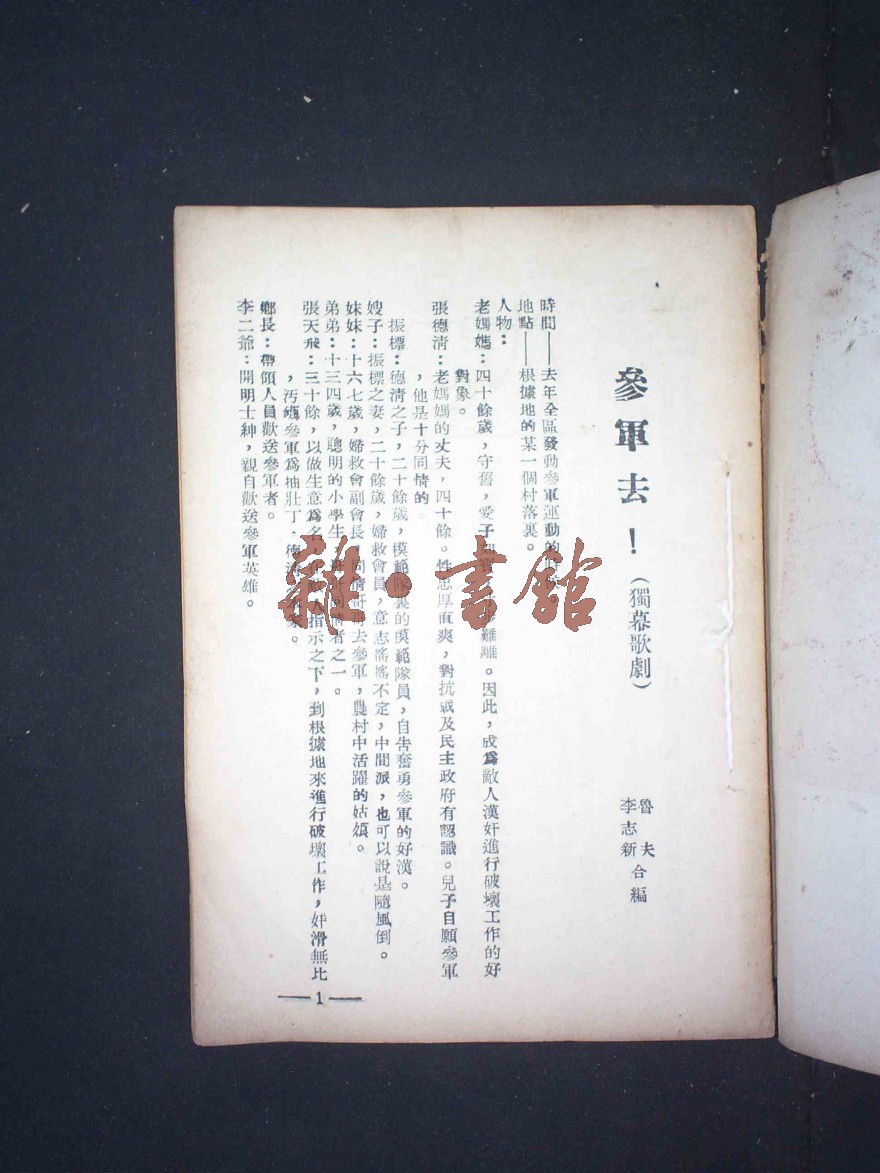 參軍去！（獨幕歌劇）
魯夫
李志新 合編
時間——去年全區發動參軍運動的時
地點——根據地的某一個村落裏。
人物：
老媽媽：四十餘歲，守舊，愛子 難離。因此，成爲敵人漢奸進行破壞工作的好
對象。
張德清：老媽媽的丈夫，四十餘。性忠厚直爽，對抗戰及民主政府有認識。兒子自願參軍
，他是十分同情的。
振標：德清之子，二十餘歲，模範隊裏的模範隊員，自告奮勇參軍的好漢。
嫂子：振標之妻，二十餘歲，婦救會員，意志搖搖不定，中間派，也可以說是隨風倒。
妹妹：十六七歲，婦救會副會長，同情哥哥去參軍，農村中活躍的姑娘。
弟弟：十三四歲，聰明的小學生， 者之一。
張天飛：三十餘，以做生意爲名，在敵人指示之下，到根據地來進行破壞工作，奸滑無比
，汚衊參軍爲抽壯丁， 。
鄉長：帶領人員歡送參軍者。
李二爺：開明士紳，親自歡送參軍英雄。
—1—
雜·書館